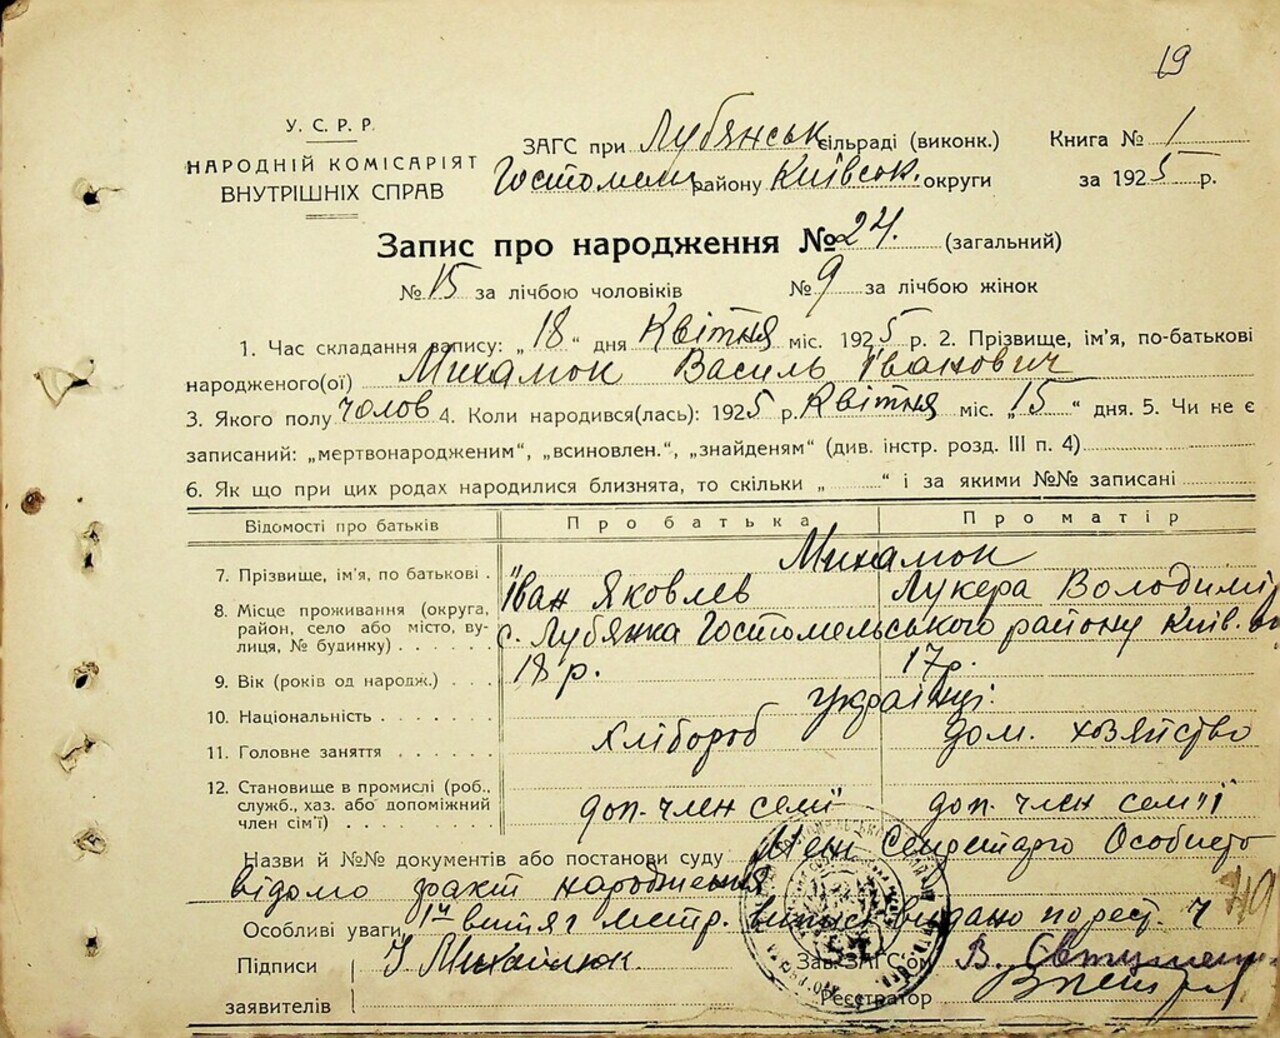 19
У. С. Р. Р.
НАРОДНІЙ КОМІСАРІЯТ
ВНУТРІШНІХ СПРАВ
ЗАГС при Лубянськ сільраді (виконк.)
Гостомель району Київськ. округи
Книга № 1
за 1925 р.
Запис про народження № 24. (загальний)
№ 15 за лічбою чоловіків № 9 за лічбою жінок
1. Час складання запису: „18“ дня Квітня міс. 1925 р. 2. Прізвище, ім'я, по-батькові
народженого(ої) Михамок Василь Іванович
3. Якого полу чолов 4. Коли народився(лась): 1925 р. Квітня міс. „15“ дня. 5. Чи не є
записаний: „мертвонародженим“, „всиновлен.“, „знайденям“ (див. інстр. розд. III п. 4)
6. Як що при цих родах народилися близнята, то скільки „ “ і за якими №№ записані
Відомості про батьків Про батька Про матір
Михамок
7. Прізвище, ім'я, по батькові . Іван Яковлев Лукера Володимір
8. Місце проживання (округа, район, село або місто, вулиця, № будинку) с. Лубянка Гостомельського району Київ.
9. Вік (років од народж.) 18 р. 17 р.
10. Національність українці.
11. Головне заняття хлібороб дом. хозяйство
12. Становище в промислі (роб., служб., хаз. або допоміжний член сім'ї) доп. член семії доп. член сем'ії
Назви й №№ документів або постанови суду Мені Секретарю Особисто
відомо факт народження
Особливі уваги 1й витяг метр. видано по рест. Ч
49
Підписи
заявителів
І Михайлюк.
Зав. ЗАГС'ом В.
Реєстратор